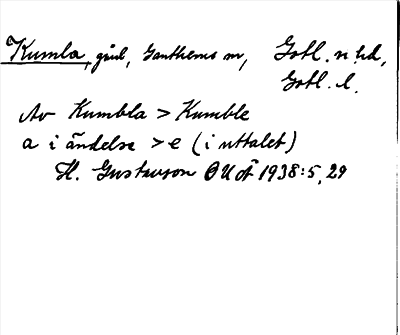 Kumla, gård, Ganthems sn, Gotl. n. hd,
Gotl. l.
Av Kumbla > Kumble
a i ändelse > e (i uttalet)
H. Gustavson OUÅ 1938:5, 29